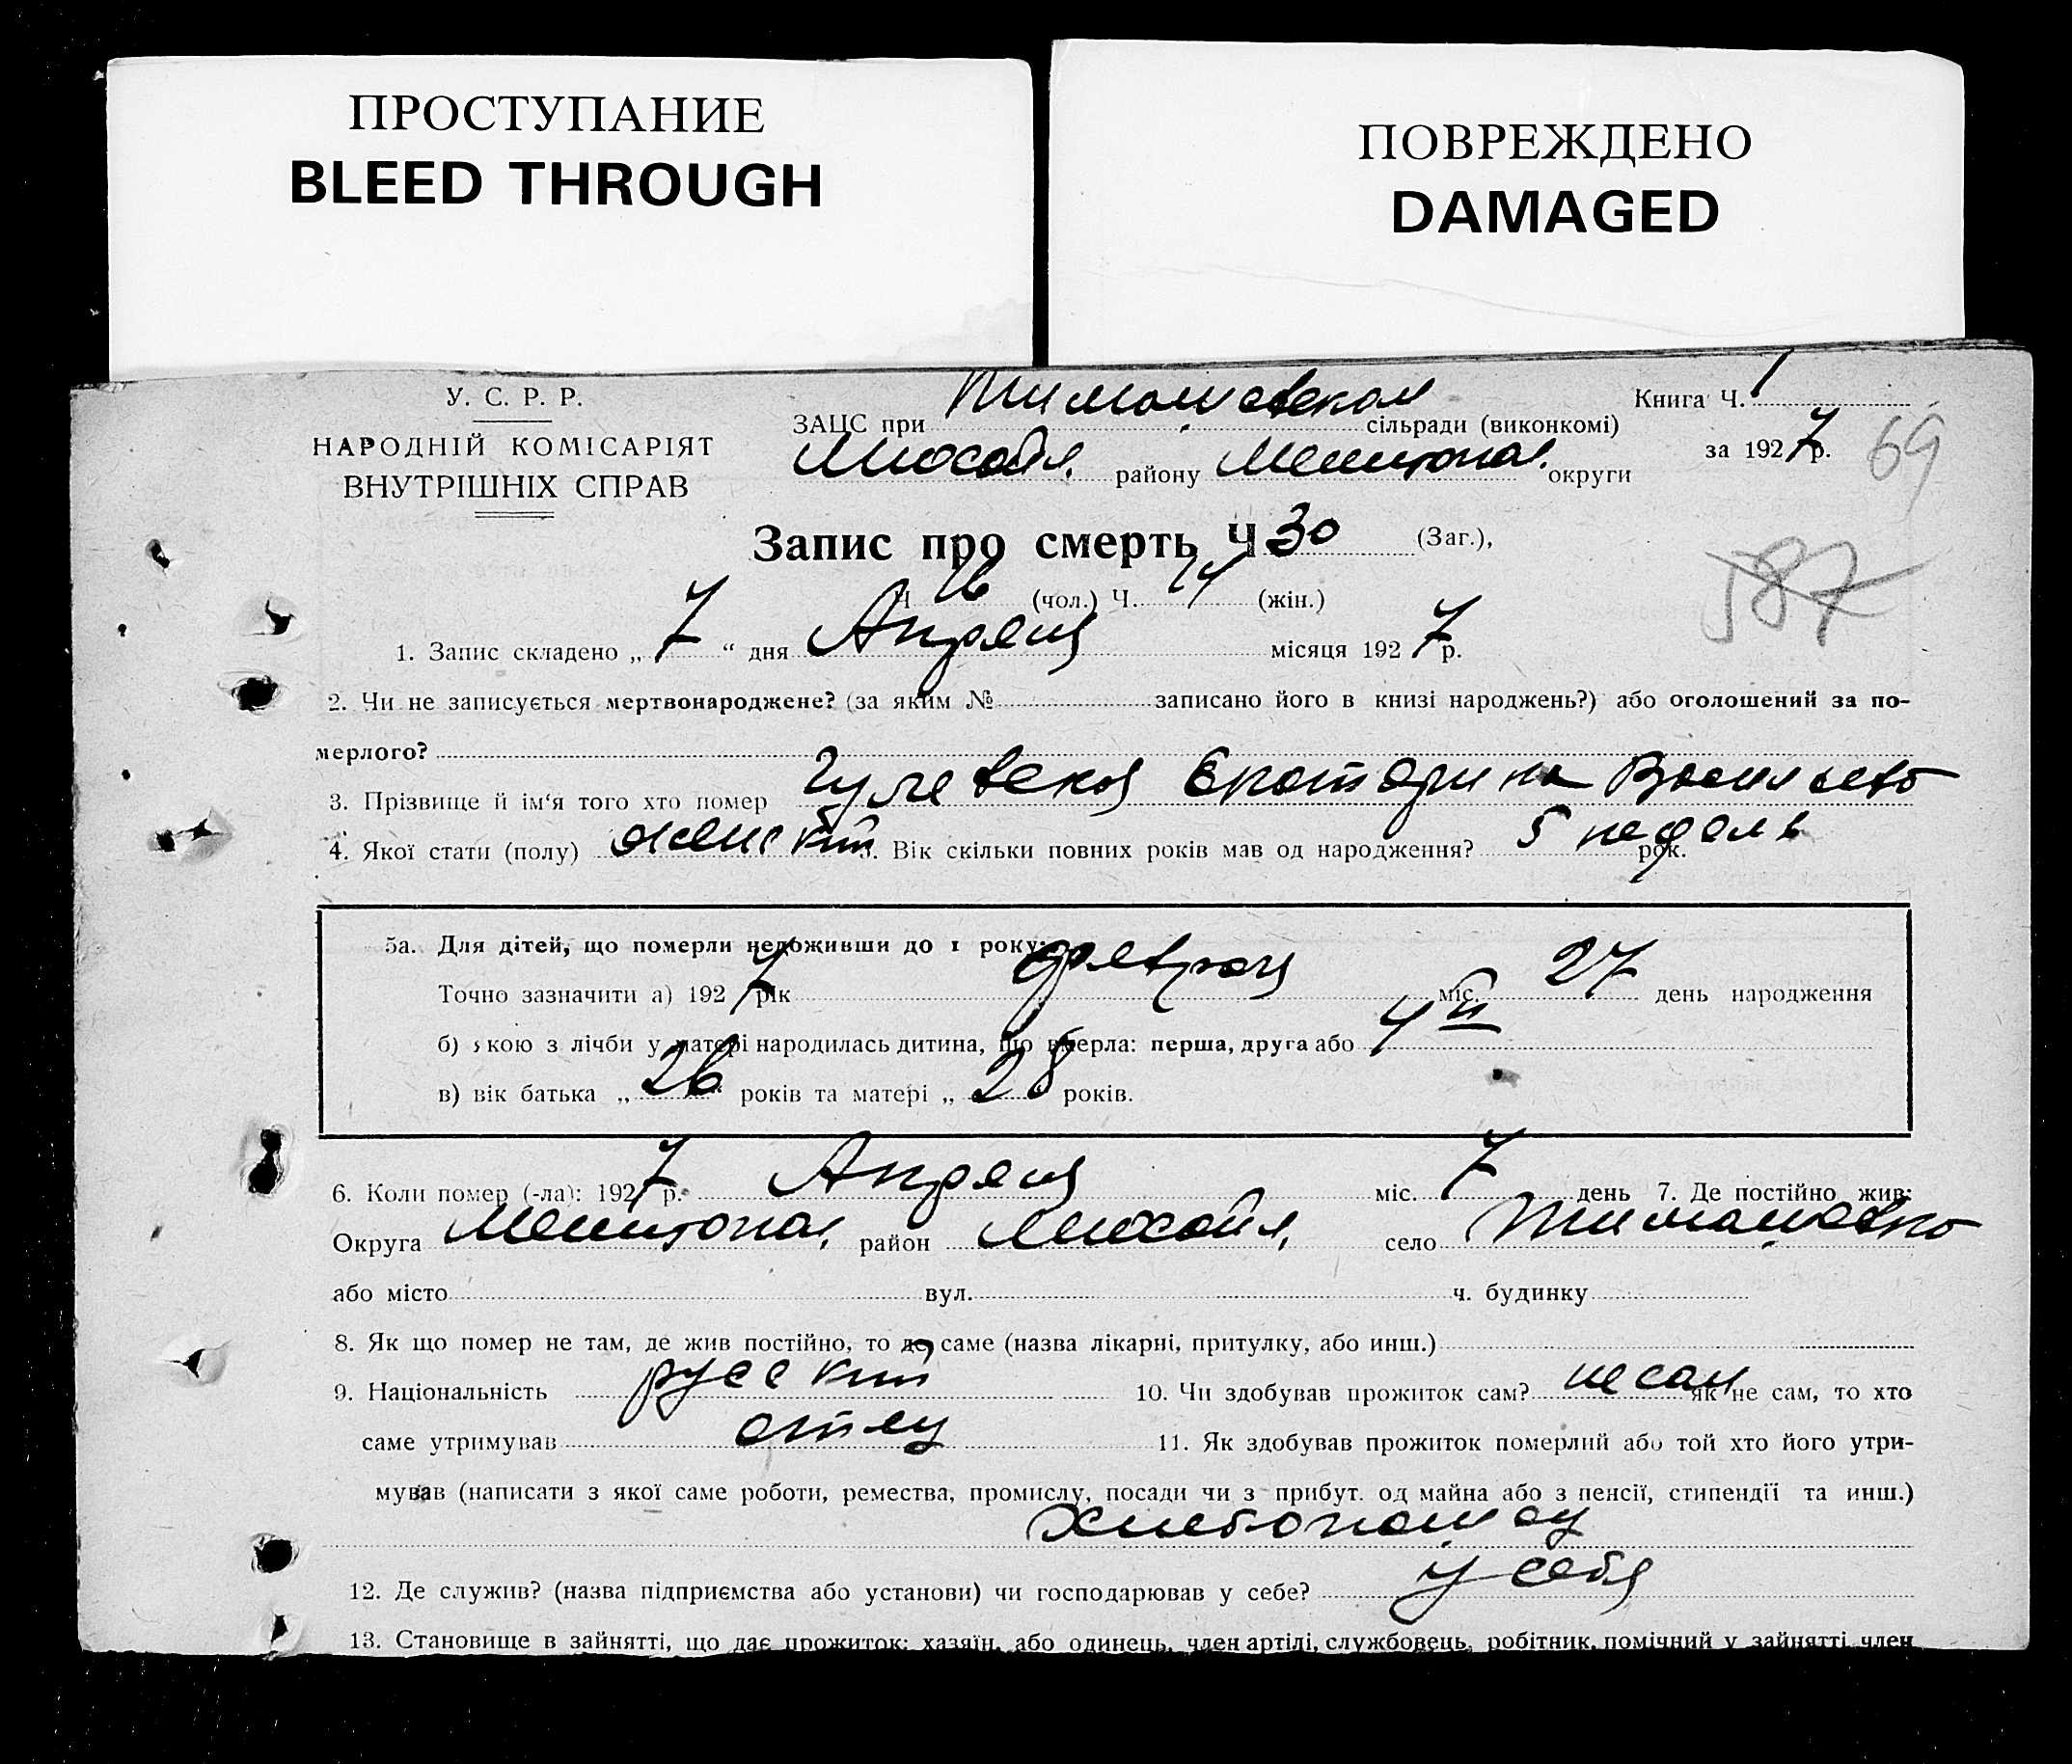 ПРОСТУПАНИЕ
BLEED THROUGH
ПОВРЕЖДЕНО
DAMAGED
У. С. Р. Р.
НАРОДНІЙ КОМІСАРІЯТ
ВНУТРІШНІХ СПРАВ
ЗАЦС при Тимошовском сільради (виконкомі)
району Мелитопол. округи
Книга Ч. 1
за 1927 р.
69
587
Запис про смерть Ч 30 (Заг.),
Ч 16 (чол.) Ч. 14 (жін.)
1. Запис складено „ 7 “ дня Апреля місяця 1927 р.
2. Чи не записується мертвонароджене? (за яким № записано його в книзі народжень?) або оголошений за по-
мерлого?
3. Прізвище й ім'я того хто помер Екатерина Василева
4. Якої стати (полу) женский 5. Вік скільки повних років мав од народження? 5 недель рок.
5а. Для дітей, що померли недоживши до 1 року:
Точно зазначити а) 1927 рік февраля міс. 27 день народження
б) якою з лічби у матері народилась дитина, що вмерла: перша, друга або 4й
в) вік батька „ 26 “ років та матері „ 28 “ років.
6. Коли помер (-ла): 1927 р. Апреля міс. 7 день 7. Де постійно жив:
Округа Мелитопол. район село Тимошовка
або місто вул. ч. будинку
8. Як що помер не там, де жив постійно, то де саме (назва лікарні, притулку, або инш.)
9. Національність русский 10. Чи здобував прожиток сам? не сам як не сам, то хто
саме утримував отец 11. Як здобував прожиток померлий або той хто його утри-
мував (написати з якої саме роботи, ремества, промислу, посади чи з прибут. од майна або з пенсії, стипендії та инш.)
Хлебопашец
12. Де служив? (назва підприємства або установи) чи господарював у себе? у себя
13. Становище в зайнятті, що дає прожиток: хазяїн, або одинець, член артілі, службовець, робітник, помічний у зайнятті член